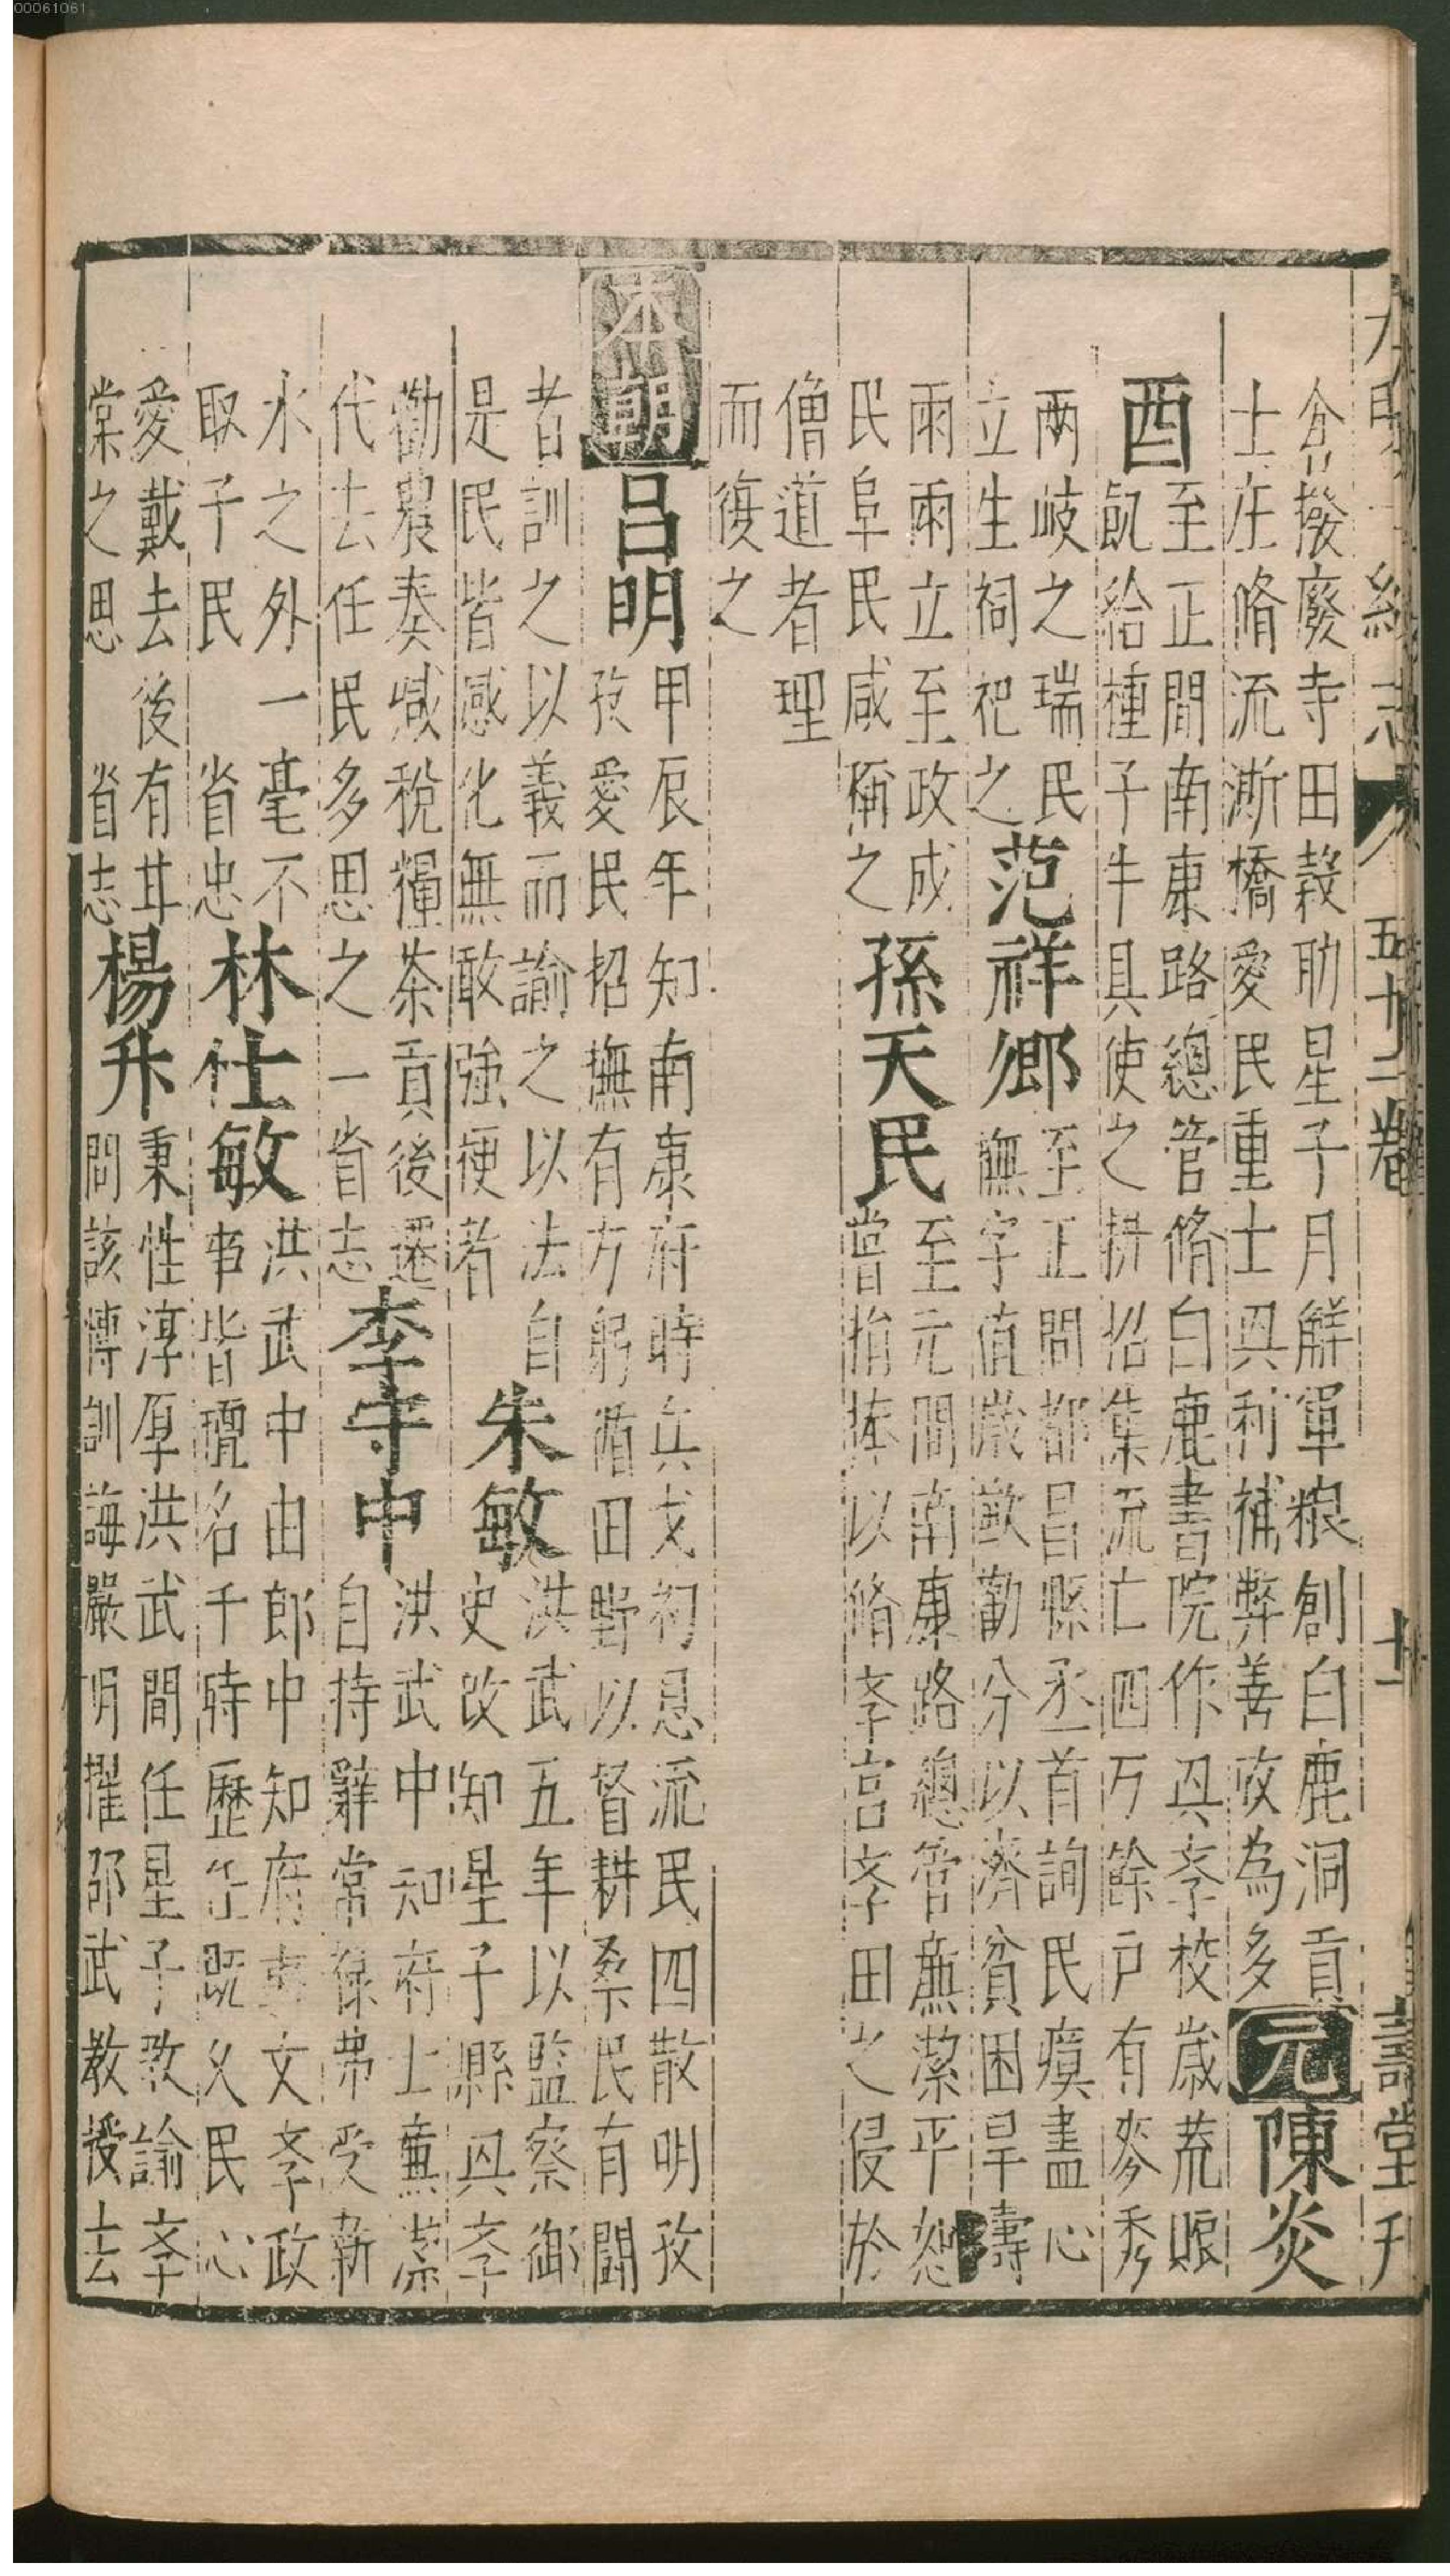 00061061
大明一統志 五十二卷 十一 壽堂刊
分撥廢寺田穀助星子月解軍粮創白鹿洞貢
士庄脩流澌橋愛民重士興利補弊善政為多 元 陳炎
酉
至正間南康路總管脩白鹿書院作興斈校歲荒賑
飢給種子牛具使之耕招集流亡四万餘戸有麥秀
两岐之瑞民
立生祠祀之
范祥卿
至正間都昌縣丞首詢民瘼盡心
撫字值歲歉勸分以濟貧困旱壽
雨雨立至政成
民阜民咸稱之
孫天民
至元間南康路總管亷潔平恕
嘗捐捧以脩斈宮斈田之侵於
僧道者理
而復之
本朝 呂明
甲辰年知南康府時兵戈初息流民四散明孜
孜愛民招撫有方躬循田野以督耕桑民有鬪
者訓之以義而諭之以法自
是民皆感化無敢強梗者
朱敏
洪武五年以監察御
史改知星子縣興斈
勸農奏减稅糧茶貢後遷
代去任民多思之一省志
李守中
洪武中知府士亷潔
自持辭常祿弗受新
水之外一毫不
取于民 省志
林仕敏
洪武中由郎中知府事文斈政
事皆冠名于時歷任既久民心
愛戴去後有甘
棠之思 省志
楊升
秉性淳厚洪武間任星子教諭斈
問該博訓誨嚴明擢邵武教授去